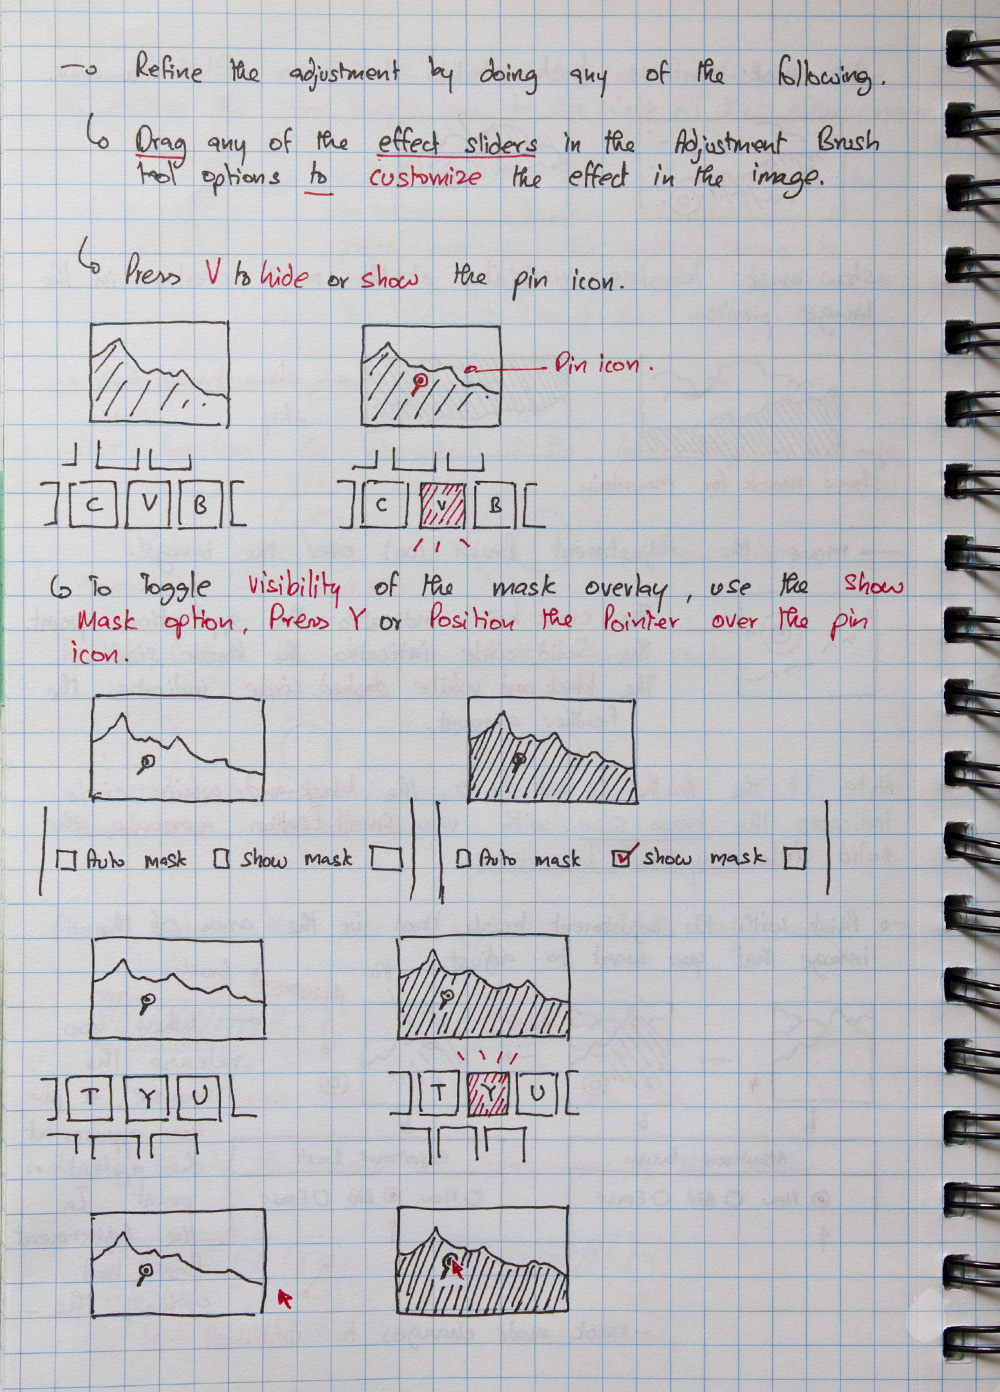 Refine the adjustment by doing any of the following.
Drag any of the effect sliders in the Adjustment Brush
tool options to customize the effect in the image.
Press V to hide or show the pin icon.
Pin icon.
C V B
C V B
To Toggle visibility of the mask overlay, use the show
Mask option, Press Y or Position the Pointer over the pin
icon.
Auto mask show mask
Auto mask show mask
T Y U
T Y U